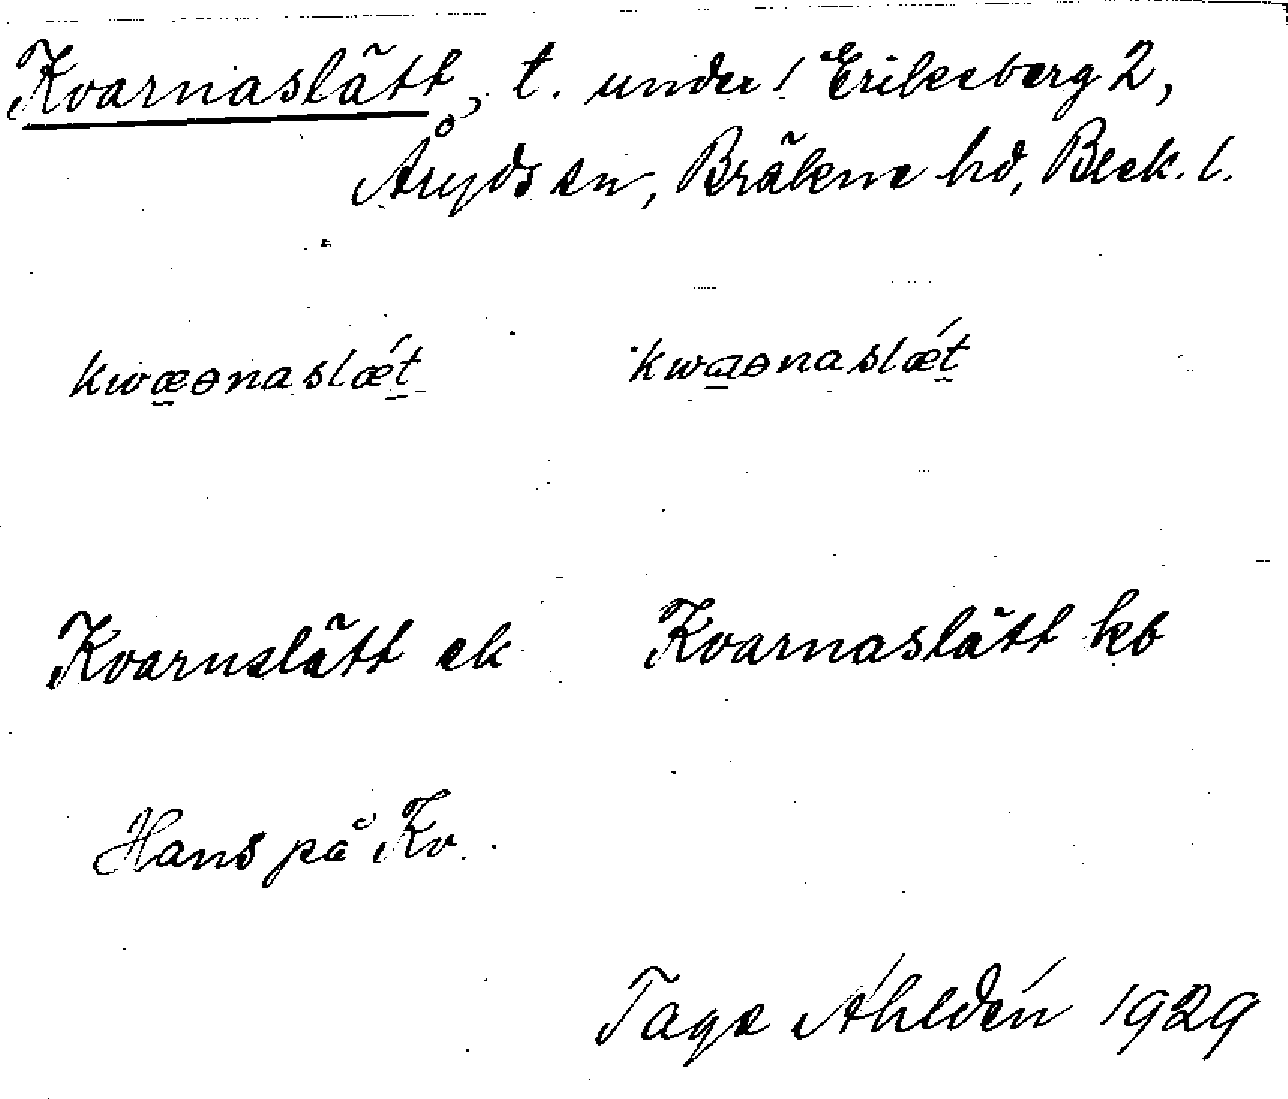 Kvarnaslätt, t. under 1 Eriksberg 2,
Åryds sn, Bräkne hd, Blek. l.
kwæɵnaslǽt kwaɵnaslǽt
Kvarnslätt ek Kvarnaslätt kb
Hans på Kv.
Tage Ahldén 1929